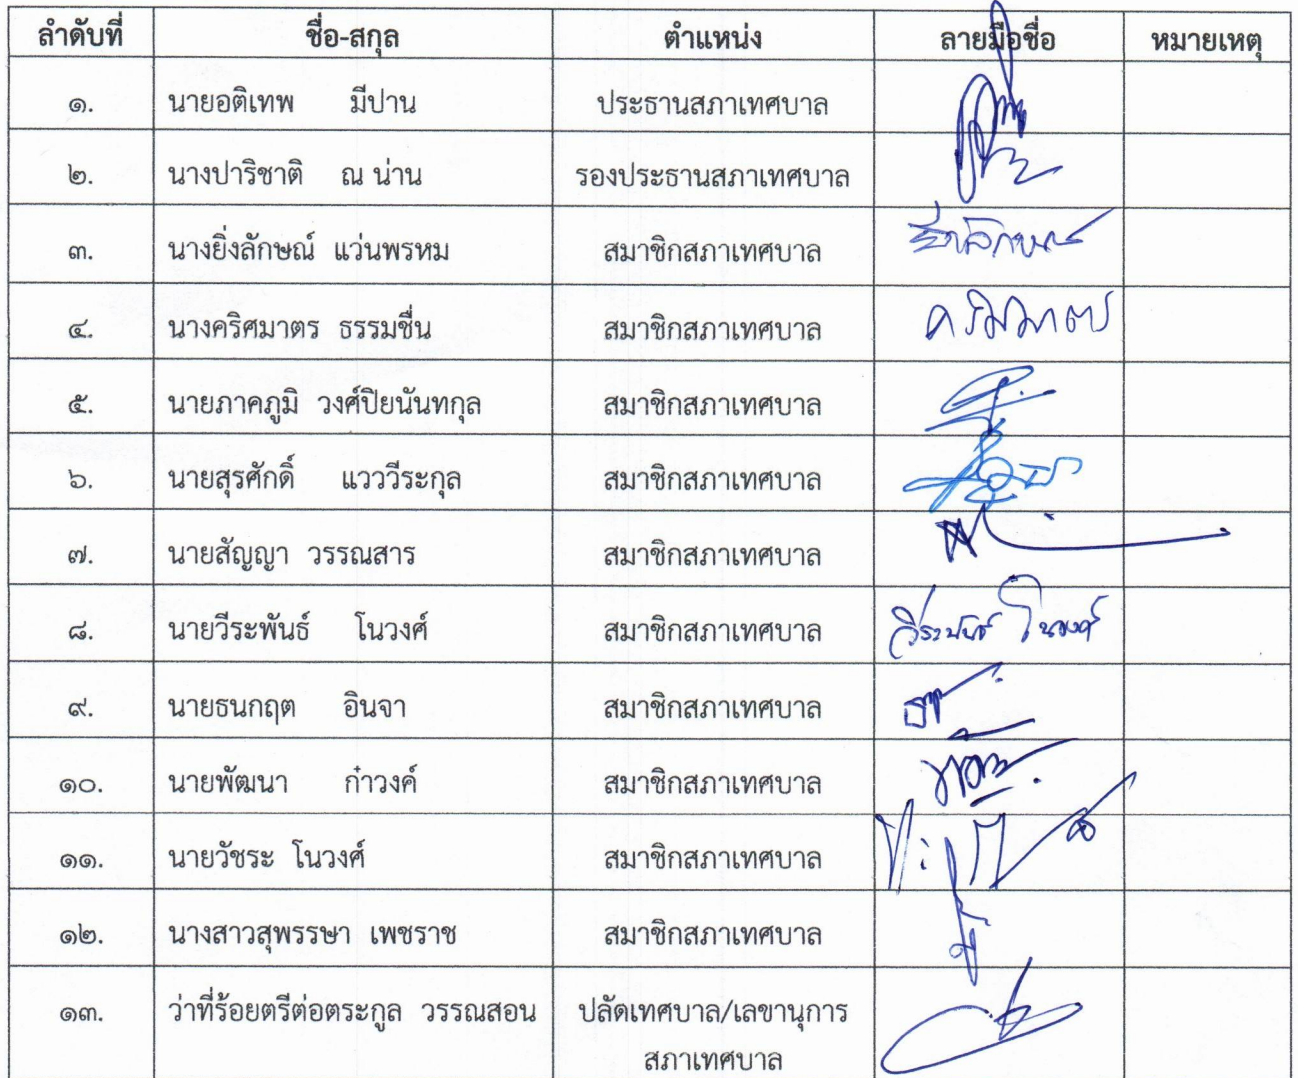 ลำดับที่ ชื่อ-สกุล ตำแหน่ง ลายมือชื่อ หมายเหตุ
๑. นายอติเทพ มีปาน ประธานสภาเทศบาล
๒. นางปาริชาติ ณ น่าน รองประธานสภาเทศบาล
๓. นางยิ่งลักษณ์ แว่นพรหม สมาชิกสภาเทศบาล ยิ่งลักษณ์
๔. นางคริศมาตร ธรรมชื่น สมาชิกสภาเทศบาล คริศมาตร
๕. นายภาคภูมิ วงศ์ปิยนันทกุล สมาชิกสภาเทศบาล
๖. นายสุรศักดิ์ แวววีระกุล สมาชิกสภาเทศบาล
๗. นายสัญญา วรรณสาร สมาชิกสภาเทศบาล
๘. นายวีระพันธ์ โนวงศ์ สมาชิกสภาเทศบาล วีระพันธ์ โนวงศ์
๙. นายธนกฤต อินจา สมาชิกสภาเทศบาล
๑๐. นายพัฒนา ก๋าวงค์ สมาชิกสภาเทศบาล
๑๑. นายวัชระ โนวงศ์ สมาชิกสภาเทศบาล
๑๒. นางสาวสุพรรษา เพชราช สมาชิกสภาเทศบาล
๑๓. ว่าที่ร้อยตรีต่อตระกูล วรรณสอน ปลัดเทศบาล/เลขานุการ
สภาเทศบาล